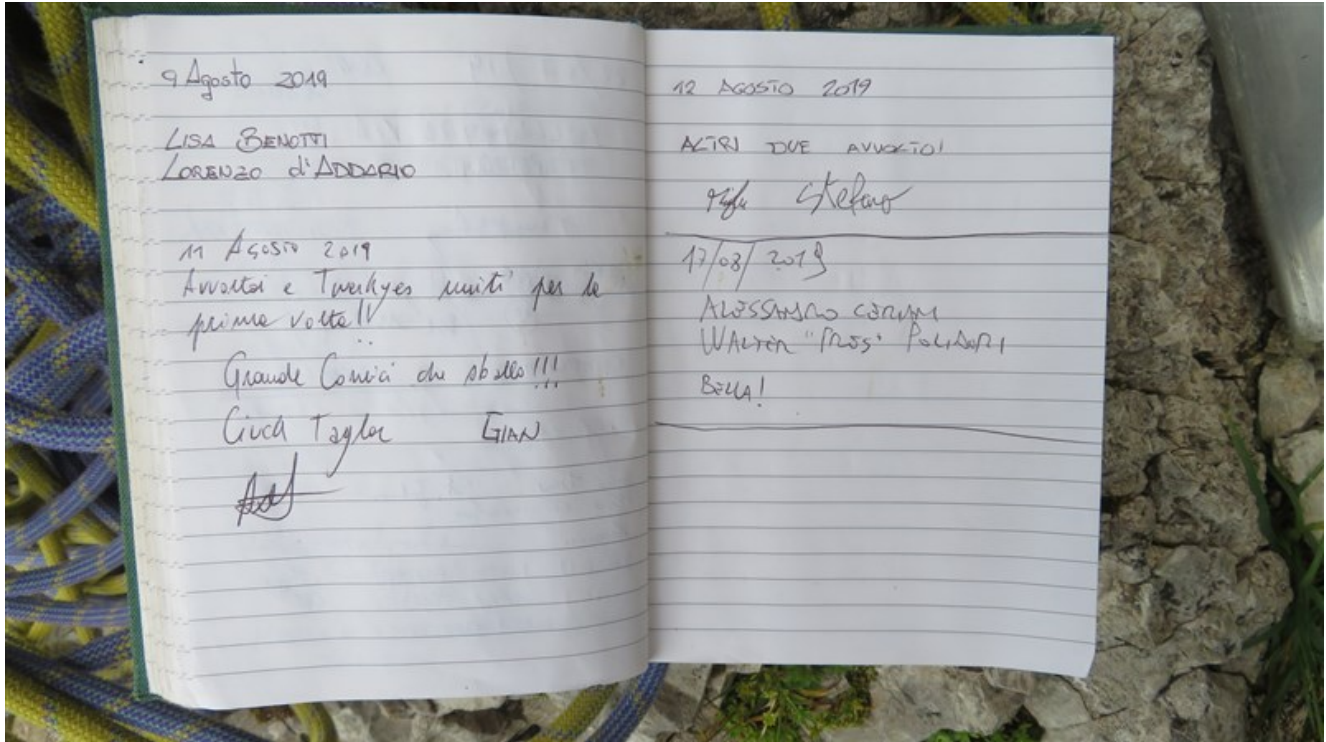 9 Agosto 2019
LISA BENOTTI
LORENZO d'ADDARIO
11 AGOSTO 2019
Avvoltoi e Twerkyes uniti per la
prima volta!!
Grande Comici che sballo!!!
Ciuch Taylor GIAN
12 AGOSTO 2019
ALTRI DUE AVVOLTOI
Stefano
17/08/2019
ALESSANDRO CERIANI
WALTER "PRES" POLIDORI
BELLA!